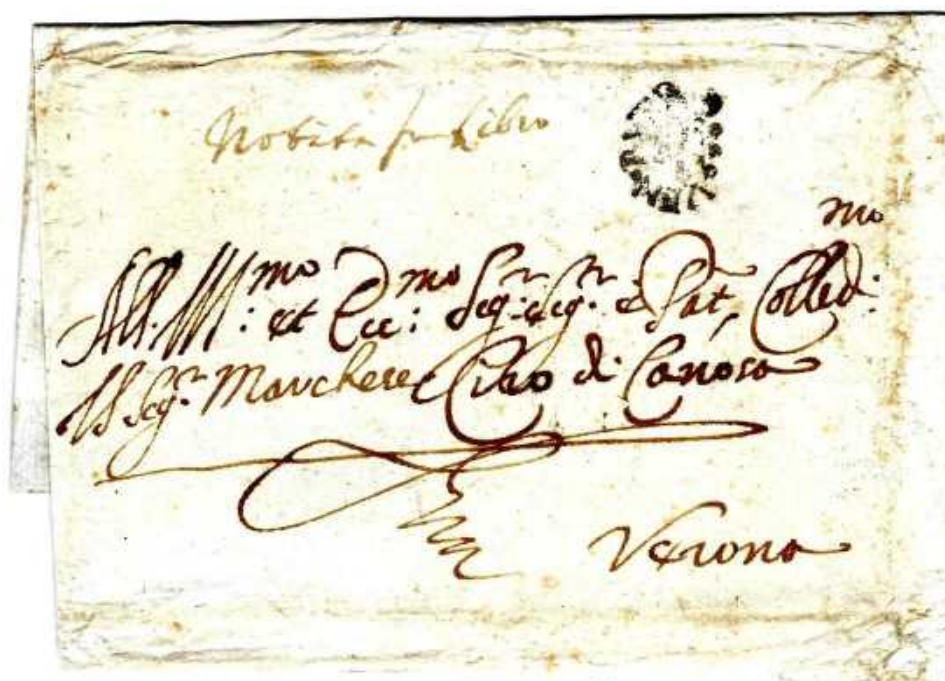 Notata in Libro
All Ill.mo: et Ecc:mo Sigr: Sigr: e Pat, Colled:mo
Il Sigr. Marchese di Canosa
Verona